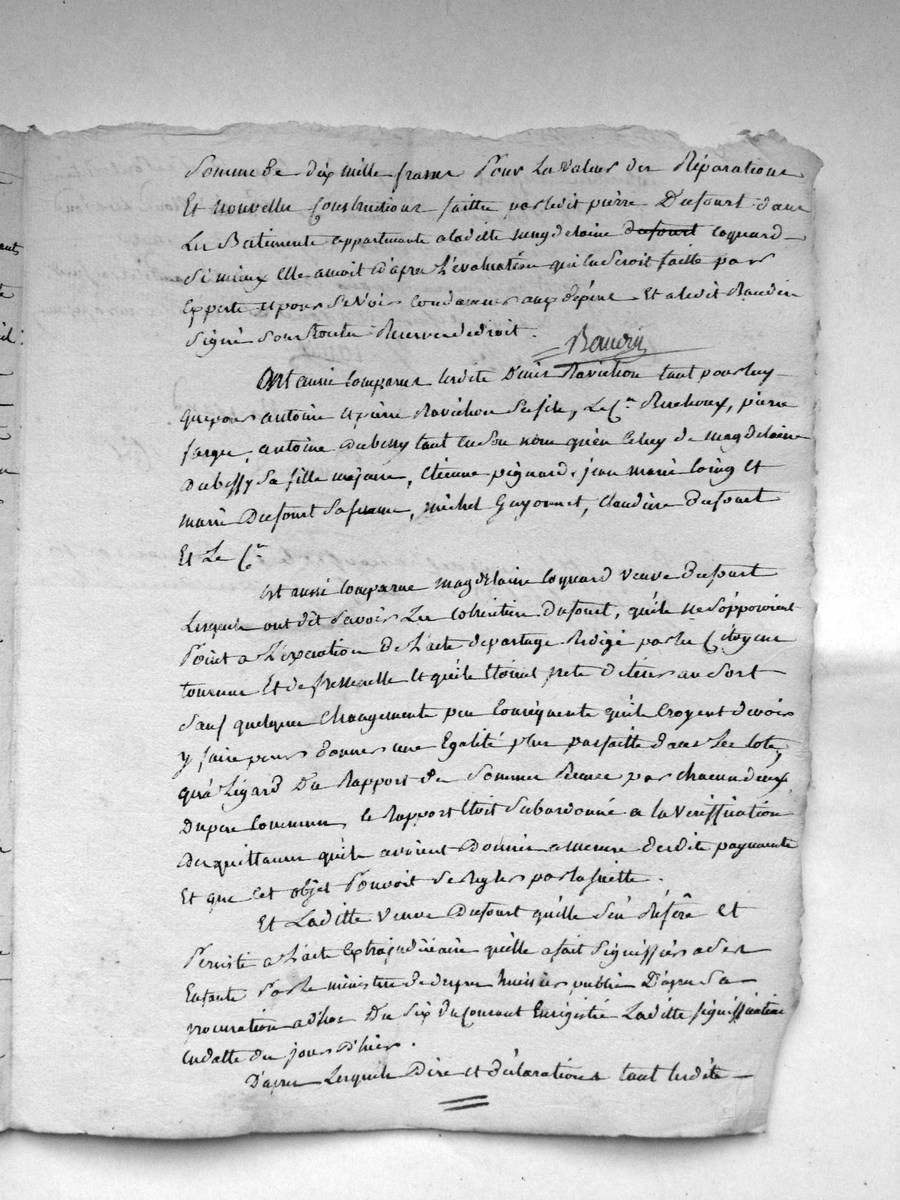 Somme de dix mille francs Pour la valeur des Réparations
Et nouvelles Constructions faittes par ledit pierre Dufourt dans
Les Batiments appartenants a laditte magdelaine dufourt Coquard
Si mieux elle aimoit d'apres L'évaluation qui en seroit faitte par
Experts et pour se voir Condamner aux dépens Et a ledit Baudin
Signé sous toutes Reserves de droit. Baudin
Ont aussi Comparus lesdits Denis Ravichon tant pour luy
que pour antoine et pierre Ravichon ses fils, Le Cn Bucheux, pierre
farge, antoine Dubessy tant en son nom qu'en celuy de magdelaine
Dubessy sa fille majeure, Etienne pignard, jean marie Loing et
marie Dufourt sa femme, michel Guyonnet, Claudine Dufourt
Et Le Cn
Est aussi Comparue magdelaine Coquard veuve Dufourt
Lesquels ont dit savoir Les Cohéritiers dufourt, qu'ils ne s'opposoient
Point a L'execution de L'acte de partage Redigé par les Citoyens
tourneux Et de fresselle Et qu'ils Etoient prets de tirer au Sort
Sauf quelques Changements peu Conséquents qu'ils croyent devoir
y faire pour donner une Egalité plus parfaitte dans Les lots,
qu'a L'égard Du Rapport des Sommes Recues par chacun d'eux
Du pere Commun, le Rapport Etoit Subordonné a la Veriffication
des quittances qu'ils avoient Donnés a mesure desdits payments
Et que Cet objet Pouvoit se Regler par la suitte.
Et Laditte veuve Dufourt qu'elle s'en Réfère Et
Persiste a L'acte Extrajudiciaire qu'elle a fait Signiffier a ses
Enfants Par le ministere de huissier public D'apres Sa
procuration adhoc Du Six du Courant Enrigistré Laditte Signiffication
En datte du jour d'hier.
D'apres Lesquels Dire et déclarations tant lesdits